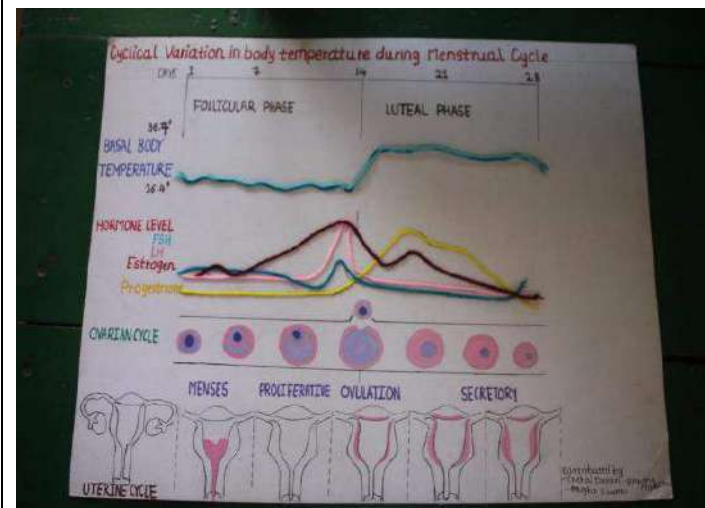 Cyclical Variation in body temperature during Menstrual Cycle
DAY 1 7 14 21 28
FOLLICULAR PHASE LUTEAL PHASE
36.7°
BASAL BODY
TEMPERATURE
36.4°
HORMONE LEVEL
FSH
LH
Estrogen
Progesterone
OVARIAN CYCLE
MENSES PROLIFERATIVE OVULATION SECRETORY
UTERINE CYCLE